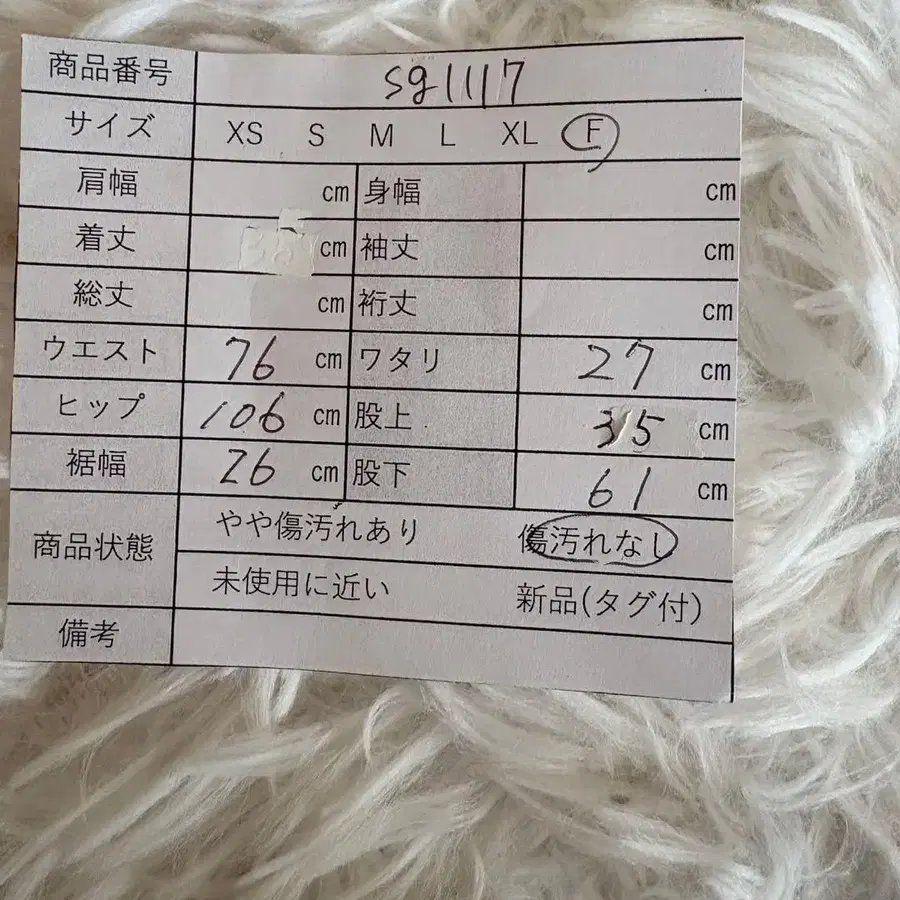 商品番号 sg1117
サイズ XS S M L XL F
肩幅 cm 身幅 cm
着丈 cm 袖丈 cm
総丈 cm 裄丈 cm
ウエスト 76 cm ワタリ 27 cm
ヒップ 106 cm 股上 35 cm
裾幅 26 cm 股下 61 cm
商品状態 やや傷汚れあり 傷汚れなし
未使用に近い 新品(タグ付)
備考